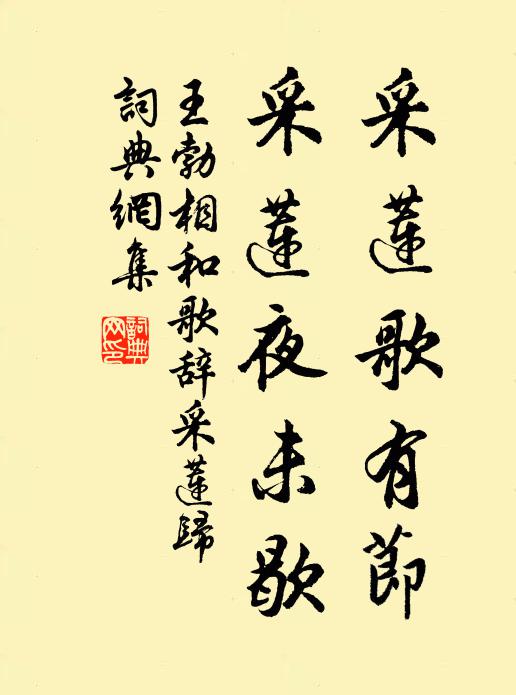 采蓮歌有節
采蓮夜未歇
王勃相和歌辞采蓮歸
詞典網集
詞典
网印